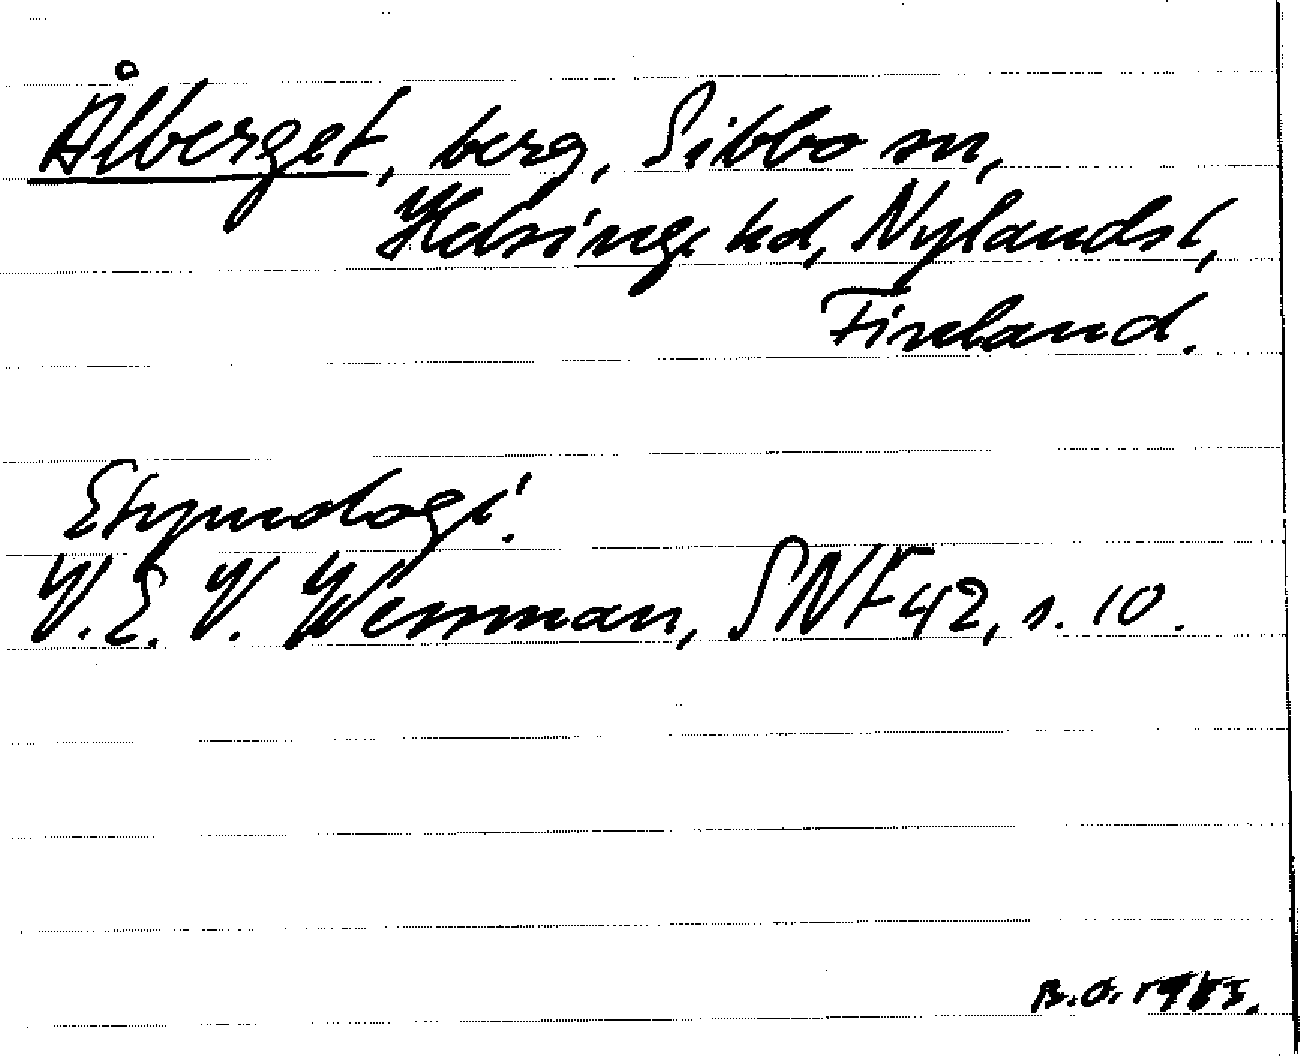 Ålberget, berg, Sibbo sn,
Helsinge hd, Nylands l,
Finland.
Etymologi:
V.E.V. Wessman, SNF 42, s. 10.
B.O.